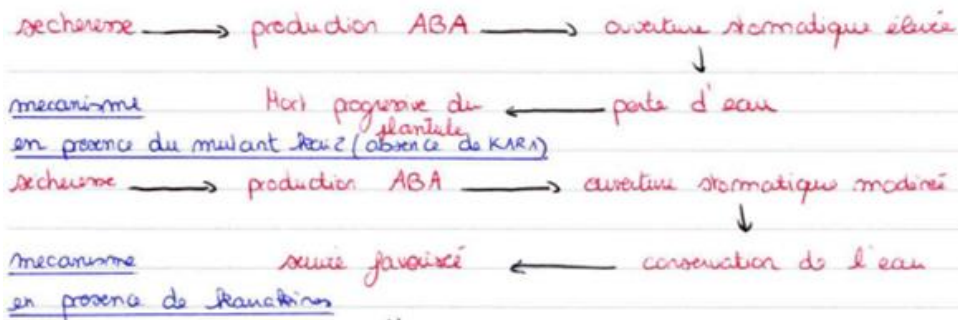 secheresse → production ABA → ouverture stomatique élevée
↓
mecanisme Mort progressive du plantule ← perte d'eau
en presence du mutant kai2 (absence de KAR1)
secheresse → production ABA → ouverture stomatique modéré
↓
mecanisme survie favorisé ← conservation de l'eau
en presence de karrikines